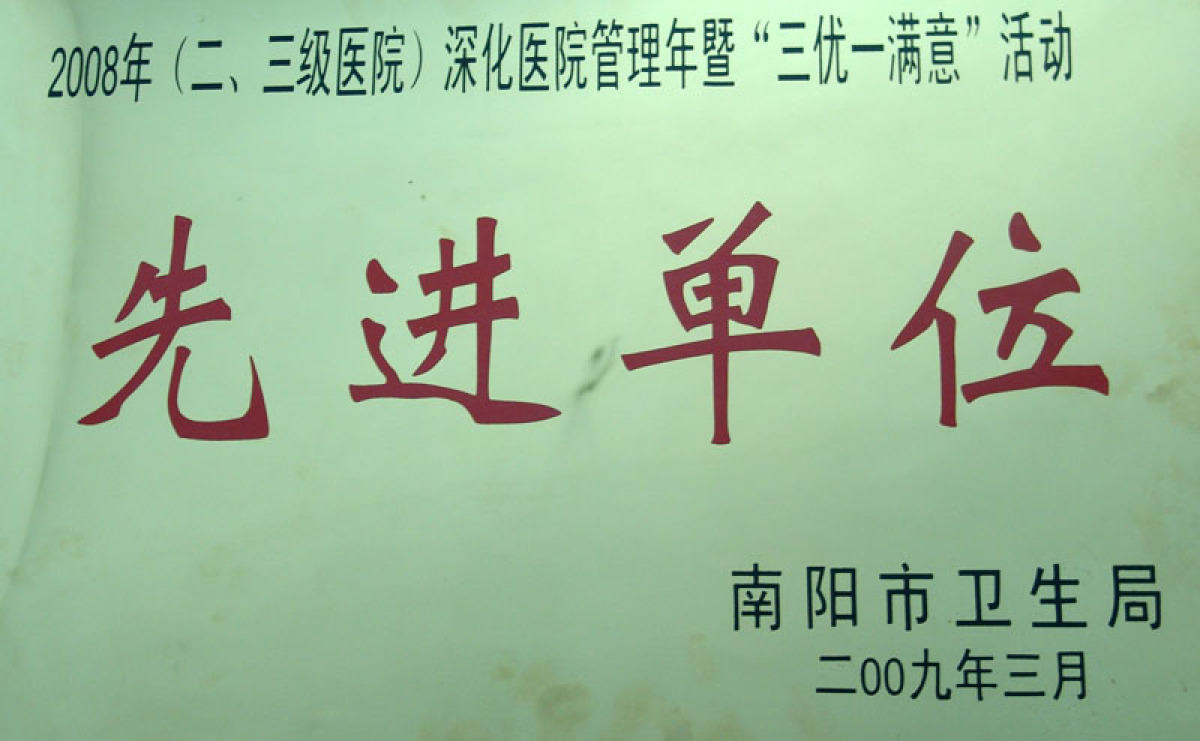 2008年（二、三级医院）深化医院管理年暨“三优一满意”活动
先进单位
南阳市卫生局
二00九年三月